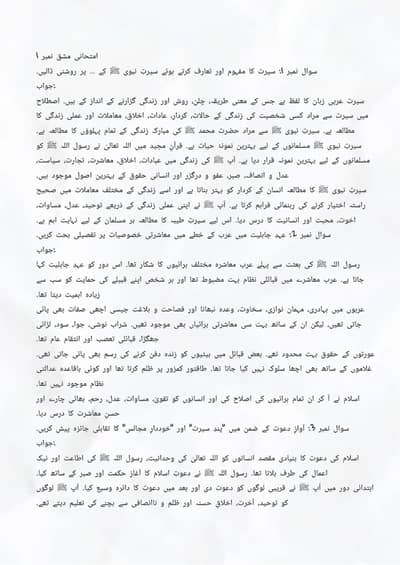 امتحانی مشق نمبر ۱
سوال نمبر ۱: سیرت کا مفہوم اور تعارف کرتے ہوئے سیرت نبوی ﷺ کے ... پر روشنی ڈالیں۔
جواب:
سیرت عربی زبان کا لفظ ہے جس کے معنی طریقہ، چلن، روش اور زندگی گزارنے کے انداز کے ہیں۔ اصطلاح
میں سیرت سے مراد کسی شخصیت کی زندگی کے حالات، کردار، عادات، اخلاق، معاملات اور عملی زندگی کا
مطالعہ ہے۔ سیرت نبوی ﷺ سے مراد حضرت محمد ﷺ کی مبارک زندگی کے تمام پہلوؤں کا مطالعہ ہے۔
سیرت نبوی ﷺ مسلمانوں کے لیے بہترین نمونہ حیات ہے۔ قرآن مجید میں اللہ تعالیٰ نے رسول اللہ ﷺ کو
مسلمانوں کے لیے بہترین نمونہ قرار دیا ہے۔ آپ ﷺ کی زندگی میں عبادات، اخلاق، معاشرت، تجارت، سیاست،
عدل و انصاف، صبر، عفو و درگزر اور انسانی حقوق کے بہترین اصول موجود ہیں۔
سیرت نبوی ﷺ کا مطالعہ انسان کے کردار کو بہتر بناتا ہے اور اسے زندگی کے مختلف معاملات میں صحیح
راستہ اختیار کرنے کی رہنمائی فراہم کرتا ہے۔ آپ ﷺ نے اپنی عملی زندگی کے ذریعے توحید، عدل، مساوات،
اخوت، محبت اور انسانیت کا درس دیا۔ اس لیے سیرت طیبہ کا مطالعہ ہر مسلمان کے لیے نہایت اہم ہے۔
سوال نمبر ۲: عہد جاہلیت میں عرب کے خطے میں معاشرتی خصوصیات پر تفصیلی بحث کریں۔
جواب:
رسول اللہ ﷺ کی بعثت سے پہلے عرب معاشرہ مختلف برائیوں کا شکار تھا۔ اس دور کو عہد جاہلیت کہا
جاتا ہے۔ عرب معاشرے میں قبائلی نظام بہت مضبوط تھا اور ہر شخص اپنے قبیلے کی حمایت کو سب سے
زیادہ اہمیت دیتا تھا۔
عربوں میں بہادری، مہمان نوازی، سخاوت، وعدہ نبھانا اور فصاحت و بلاغت جیسی اچھی صفات بھی پائی
جاتی تھیں، لیکن ان کے ساتھ بہت سی معاشرتی برائیاں بھی موجود تھیں۔ شراب نوشی، جوا، سود، لڑائی
جھگڑا، قبائلی تعصب اور انتقام عام تھا۔
عورتوں کے حقوق بہت محدود تھے۔ بعض قبائل میں بیٹیوں کو زندہ دفن کرنے کی رسم بھی پائی جاتی تھی۔
غلاموں کے ساتھ بھی اچھا سلوک نہیں کیا جاتا تھا۔ طاقتور کمزور پر ظلم کرتا تھا اور کوئی باقاعدہ عدالتی
نظام موجود نہیں تھا۔
اسلام نے آ کر ان تمام برائیوں کی اصلاح کی اور انسانوں کو تقویٰ، مساوات، عدل، رحم، بھائی چارے اور
حسن معاشرت کا درس دیا۔
سوال نمبر ۳: آواز دعوت کے ضمن میں "پند سیرت" اور "خوددار مجالس" کا تقابلی جائزہ پیش کریں۔
جواب:
اسلام کی دعوت کا بنیادی مقصد انسانوں کو اللہ تعالیٰ کی وحدانیت، رسول اللہ ﷺ کی اطاعت اور نیک
اعمال کی طرف بلانا تھا۔ رسول اللہ ﷺ نے دعوت اسلام کا آغاز حکمت اور صبر کے ساتھ کیا۔
ابتدائی دور میں آپ ﷺ نے قریبی لوگوں کو دعوت دی اور بعد میں دعوت کا دائرہ وسیع کیا۔ آپ ﷺ لوگوں
کو توحید، آخرت، اخلاق حسنہ اور ظلم و ناانصافی سے بچنے کی تعلیم دیتے تھے۔